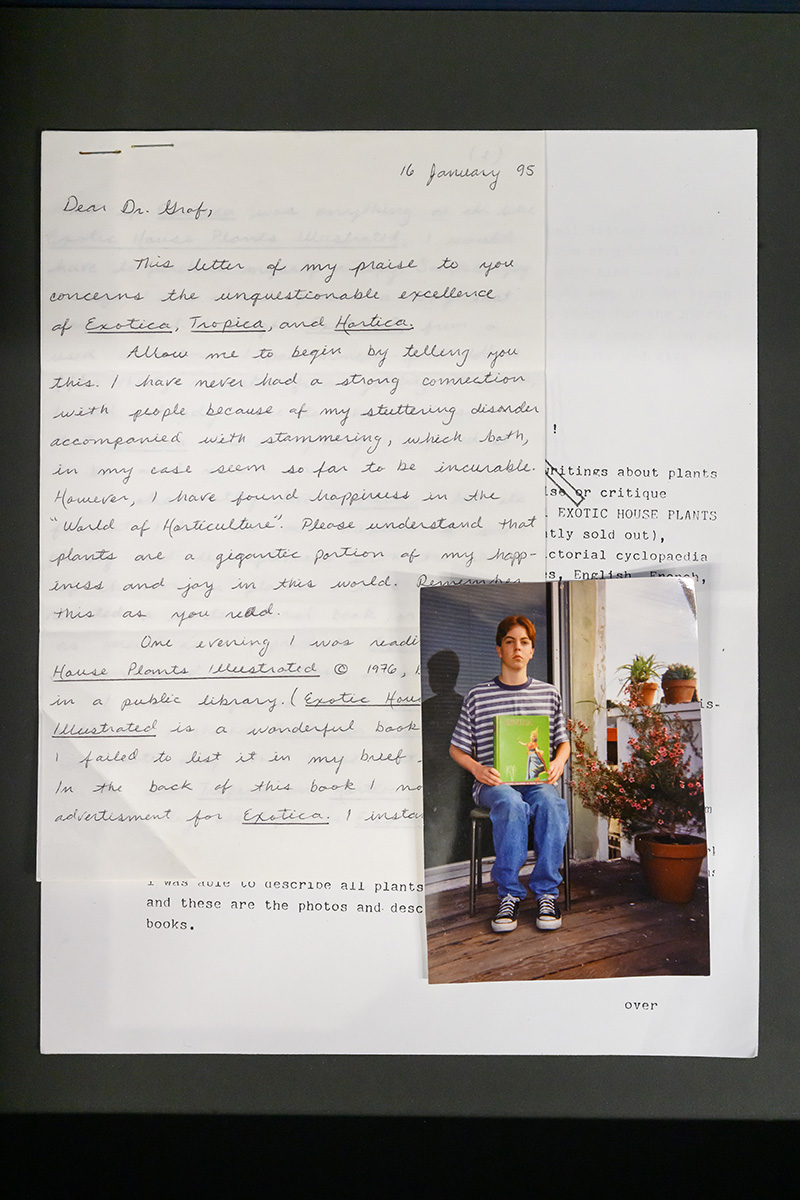 16 January 95
Dear Dr. Graf,
This letter of my praise to you
concerns the unquestionable excellence
of Exotica, Tropica, and Hortica.
Allow me to begin by telling you
this. I have never had a strong connection
with people because of my stuttering disorder
accompanied with stammering, which both,
in my case seem so far to be incurable.
However, I have found happiness in the
"World of Horticulture". Please understand that
plants are a gigantic portion of my happ-
iness and joy in this world. Remember
this as you read.
One evening I was readi
House Plants Illustrated © 1976,
in a public library. (Exotic Hou
Illustrated is a wonderful book
I failed to list it in my brief
In the back of this book I no
advertisment for Exotica. I insta
!
writings about plants
ise or critique
EXOTIC HOUSE PLANTS
tly sold out),
ctorial cyclopaedia
s, English, French,
is-
I was able to describe all plants
and these are the photos and desc
books.
over